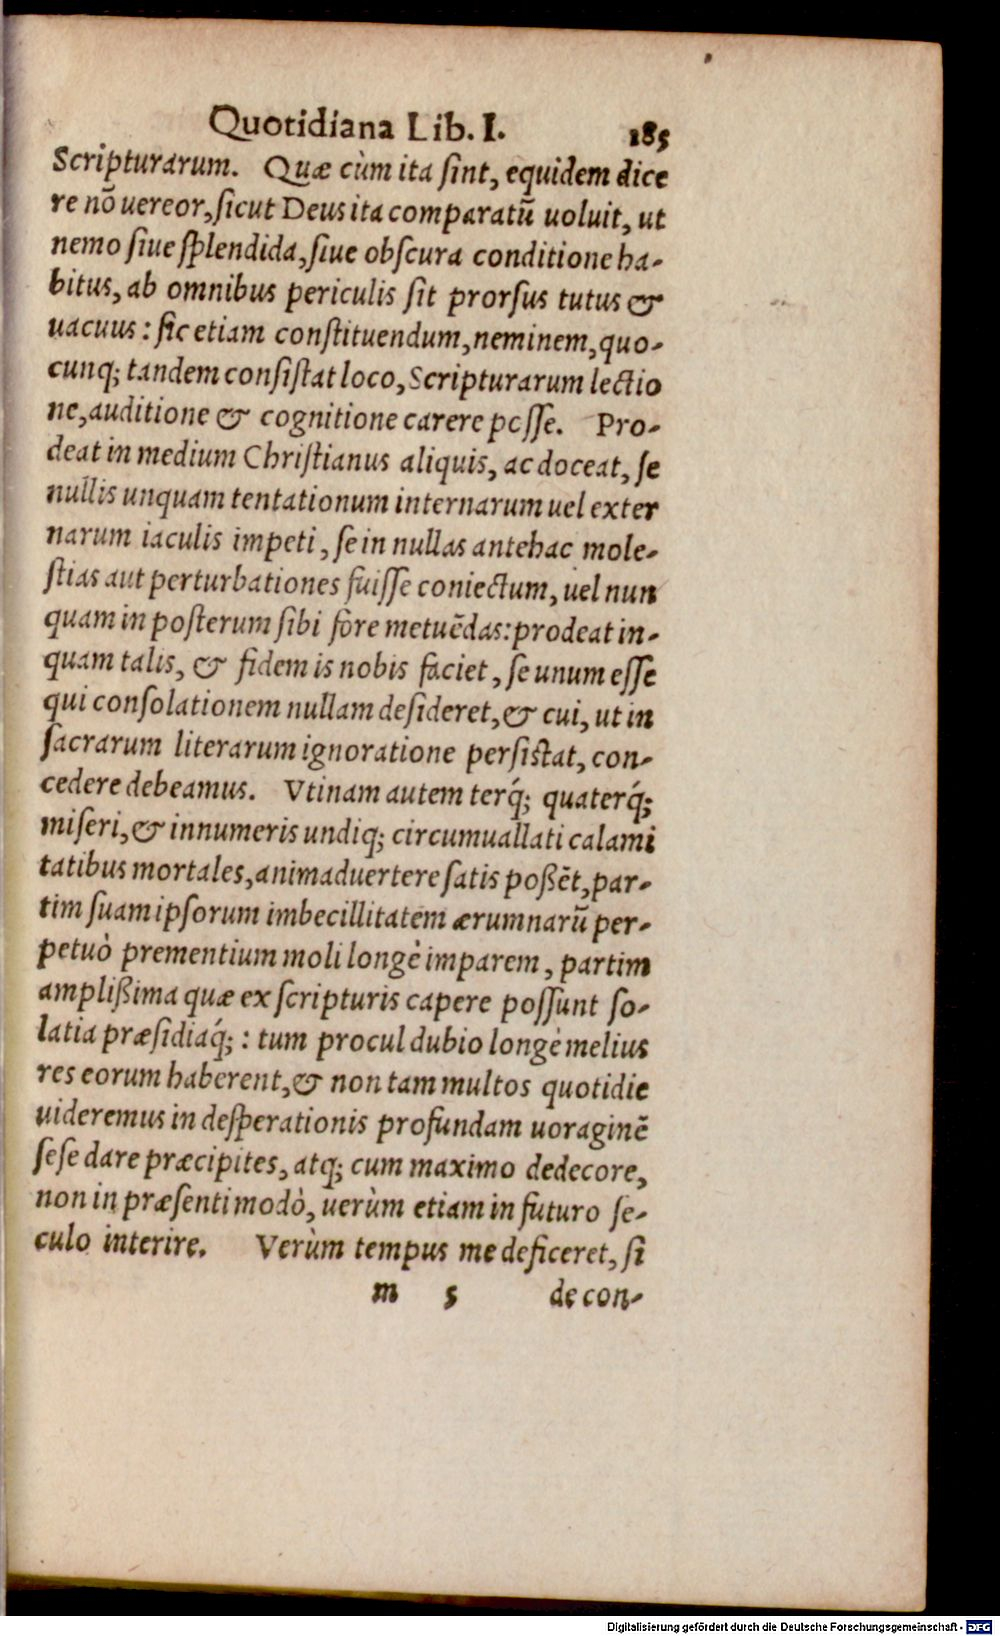 Quotidiana Lib. I. 185
Scripturarum. Quæ cùm ita ſint, equidem dice
re nõ uereor, ſicut Deus ita comparatũ uoluit, ut
nemo ſiue ſplendida, ſiue obſcura conditione ha-
bitus, ab omnibus periculis ſit prorſus tutus &
uacuus: ſic etiam conſtituendum, neminem, quo-
cunq; tandem conſiſtat loco, Scripturarum lectio
ne, auditione & cognitione carere poſſe. Pro-
deat in medium Chriſtianus aliquis, ac doceat, ſe
nullis unquam tentationum internarum uel exter
narum iaculis impeti, ſe in nullas antehac mole-
ſtias aut perturbationes fuiſſe coniectum, uel nun
quam in poſterum ſibi fore metuẽdas: prodeat in-
quam talis, & fidem is nobis faciet, ſe unum eſſe
qui conſolationem nullam deſideret, & cui, ut in
ſacrarum literarum ignoratione perſiſtat, con-
cedere debeamus. Vtinam autem terq́; quaterq́;
miſeri, & innumeris undiq; circumuallati calami
tatibus mortales, animaduertere ſatis poßẽt, par-
tim ſuam ipſorum imbecillitatem ærumnarũ per-
petuò prementium moli longè imparem, partim
amplißima quæ ex ſcripturis capere poſſunt ſo-
latia præſidiaq́; : tum procul dubio longè melius
res eorum haberent, & non tam multos quotidie
uideremus in deſperationis profundam uoraginẽ
ſeſe dare præcipites, atq; cum maximo dedecore,
non in præſenti modò, uerùm etiam in futuro ſe-
culo interire. Verùm tempus me deficeret, ſi
m 5 de con-
Digitalisierung gefördert durch die Deutsche Forschungsgemeinschaft - DFG